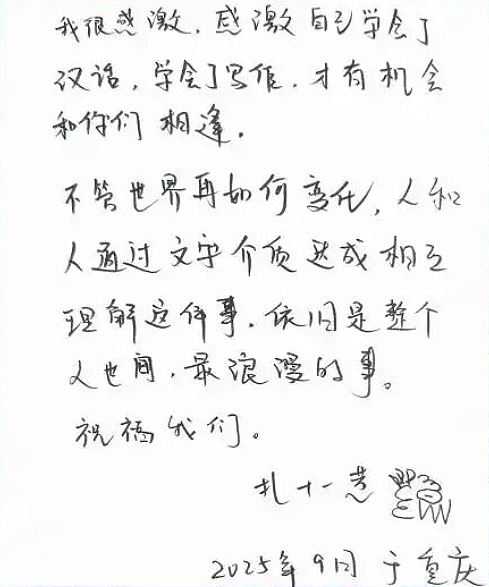 我很感激，感激自己学会了
汉话，学会了写作，才有机会
和你们相逢。
不管世界再如何变化，人和
人通过文字介质达成相互
理解这件事，依旧是整个
人世间，最浪漫的事。
祝福我们。
扎十一惹
2025年9月 于重庆